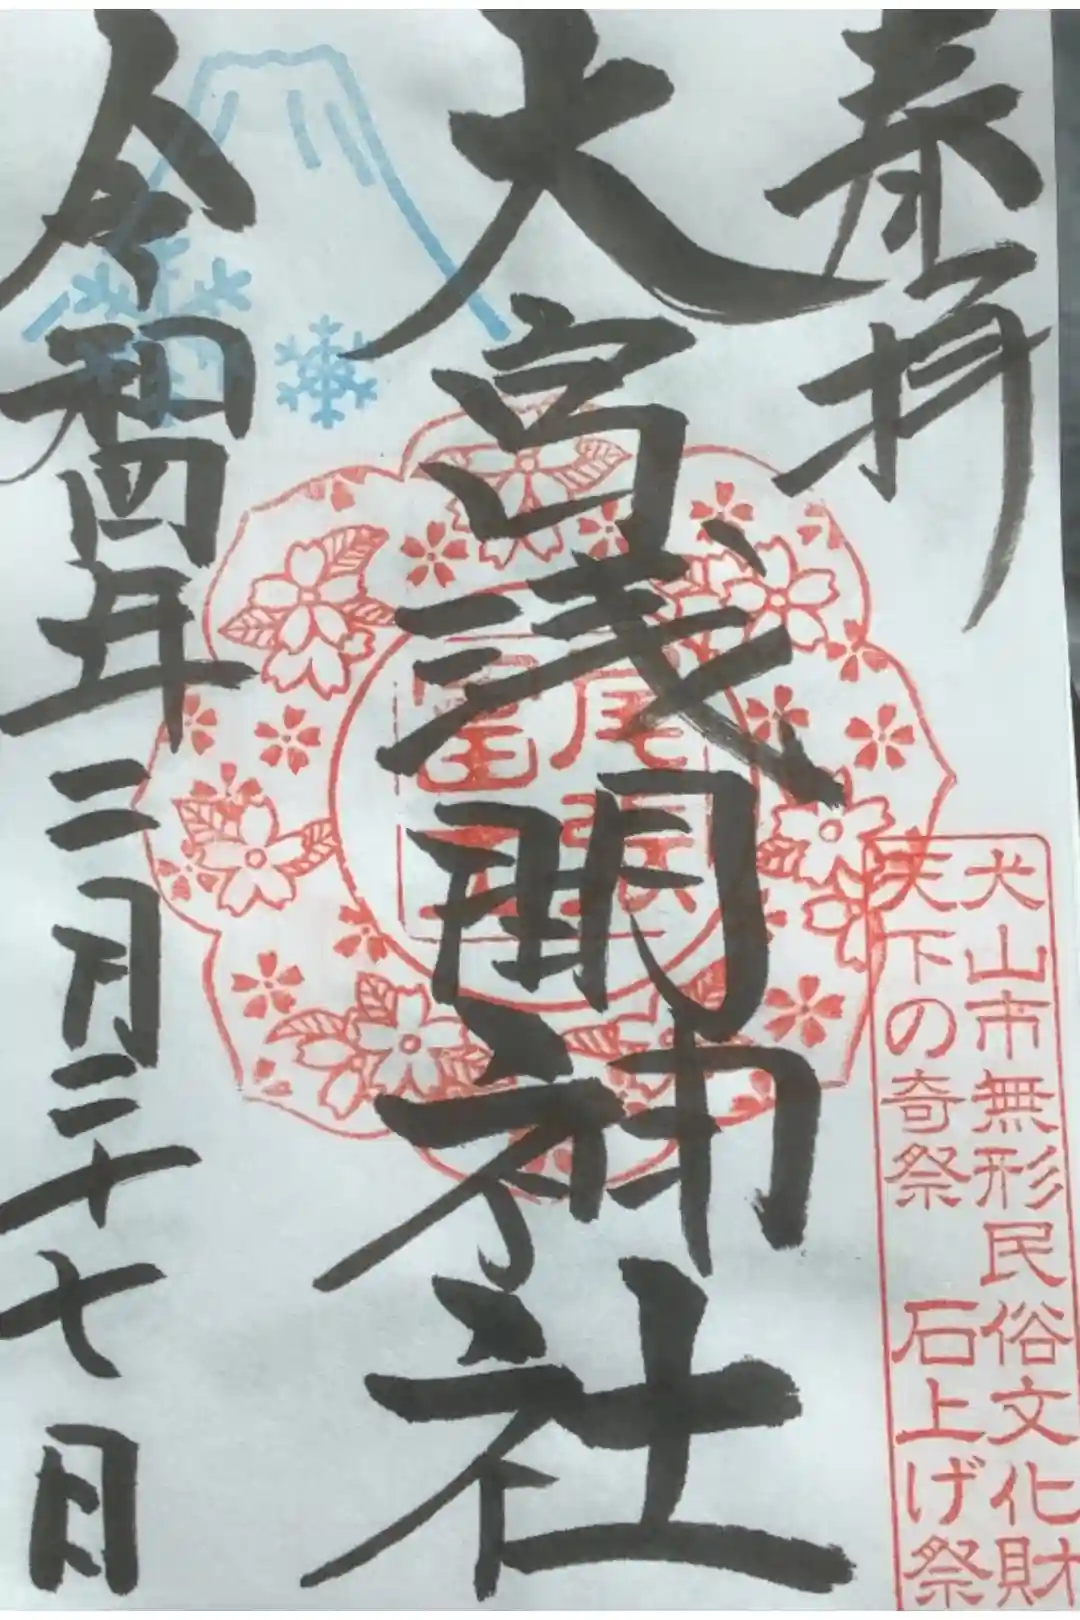 奉拝
大宮浅間神社
令和四年二月二十七日
犬山市無形民俗文化財
天下の奇祭 石上げ祭
尾張